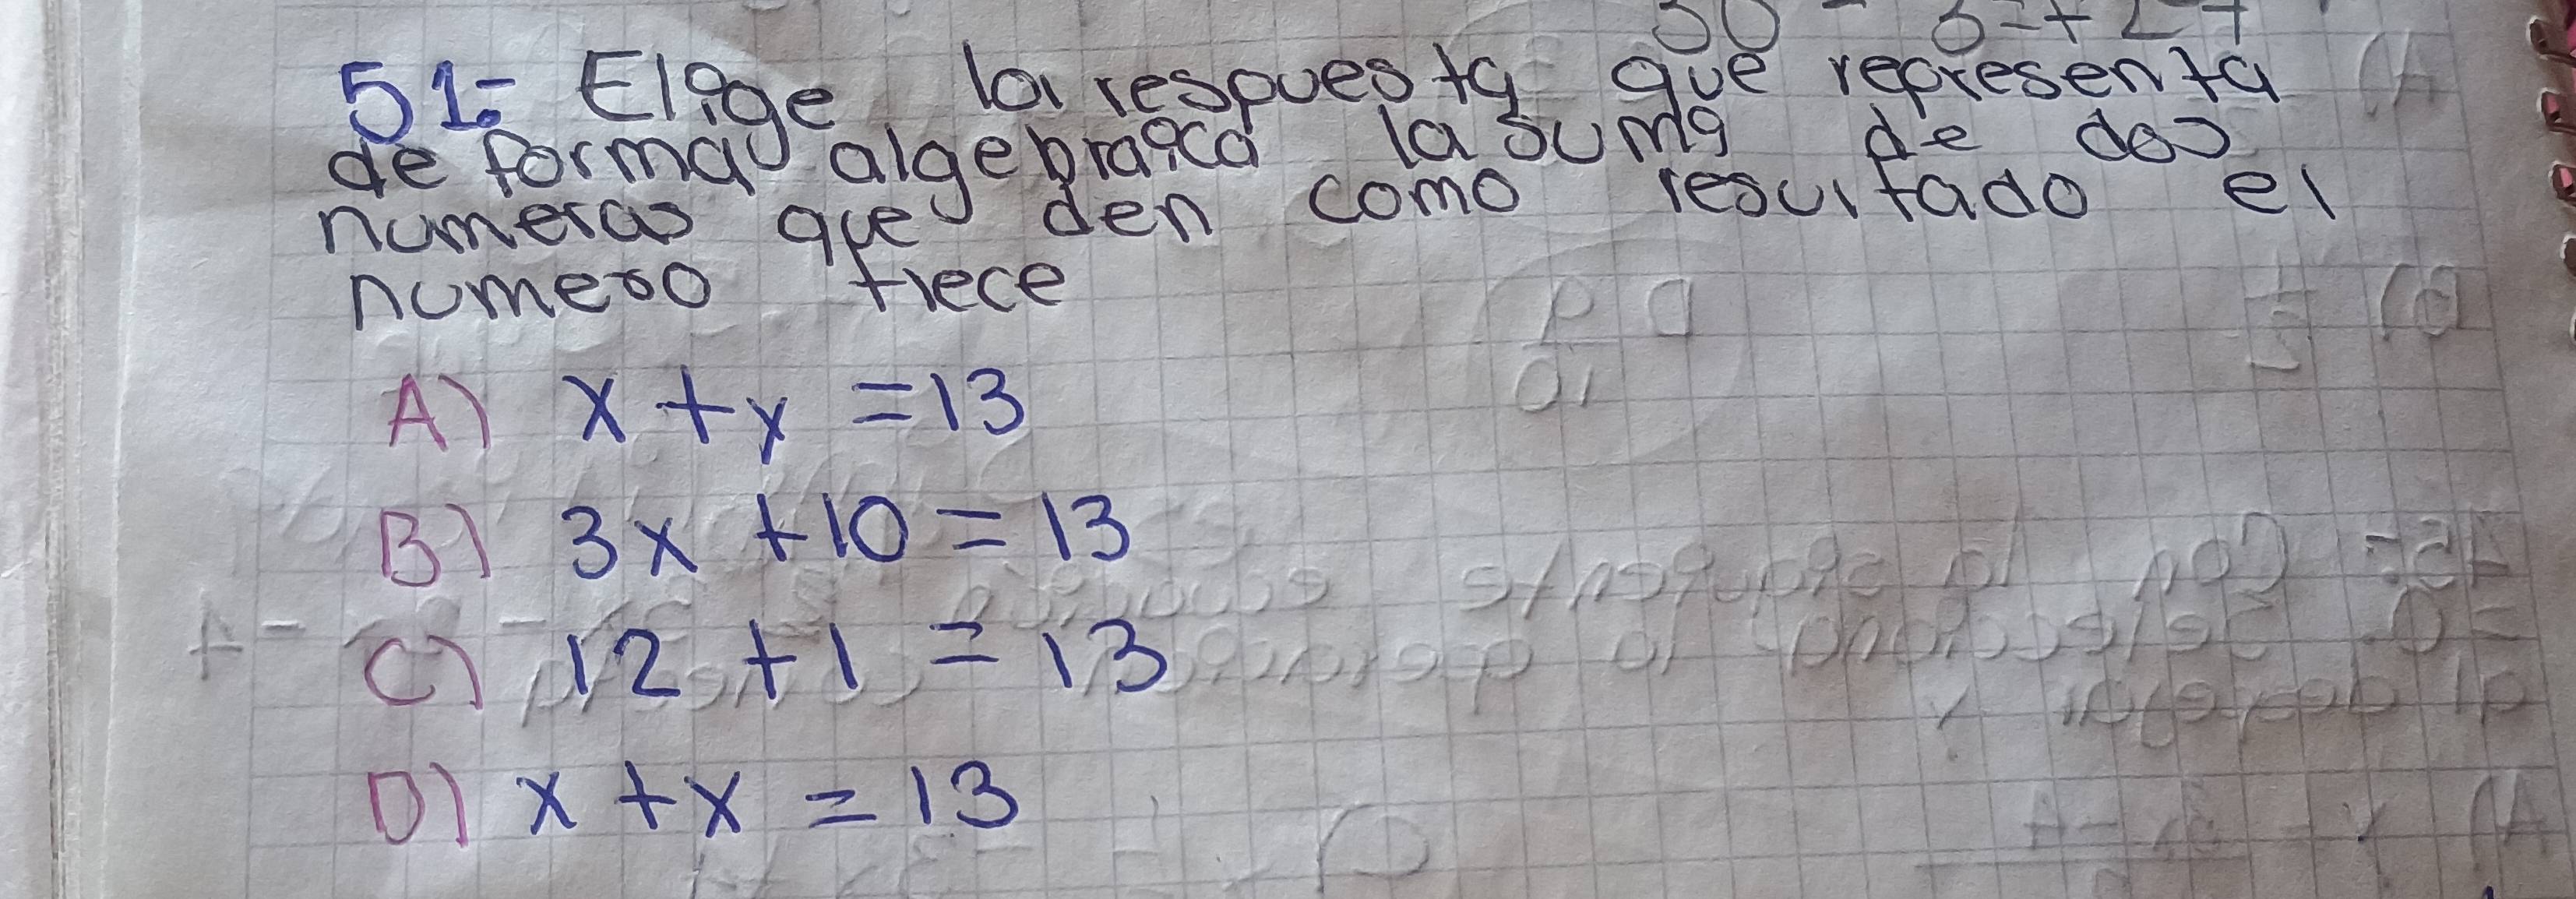 51:- Elige la respuesta que representa
de forma algebraica la suma de dos
numeros que den como resultado el
numero trece
A) x + y = 13
B) 3x + 10 = 13
C) 12 + 1 = 13
D) x + x = 13